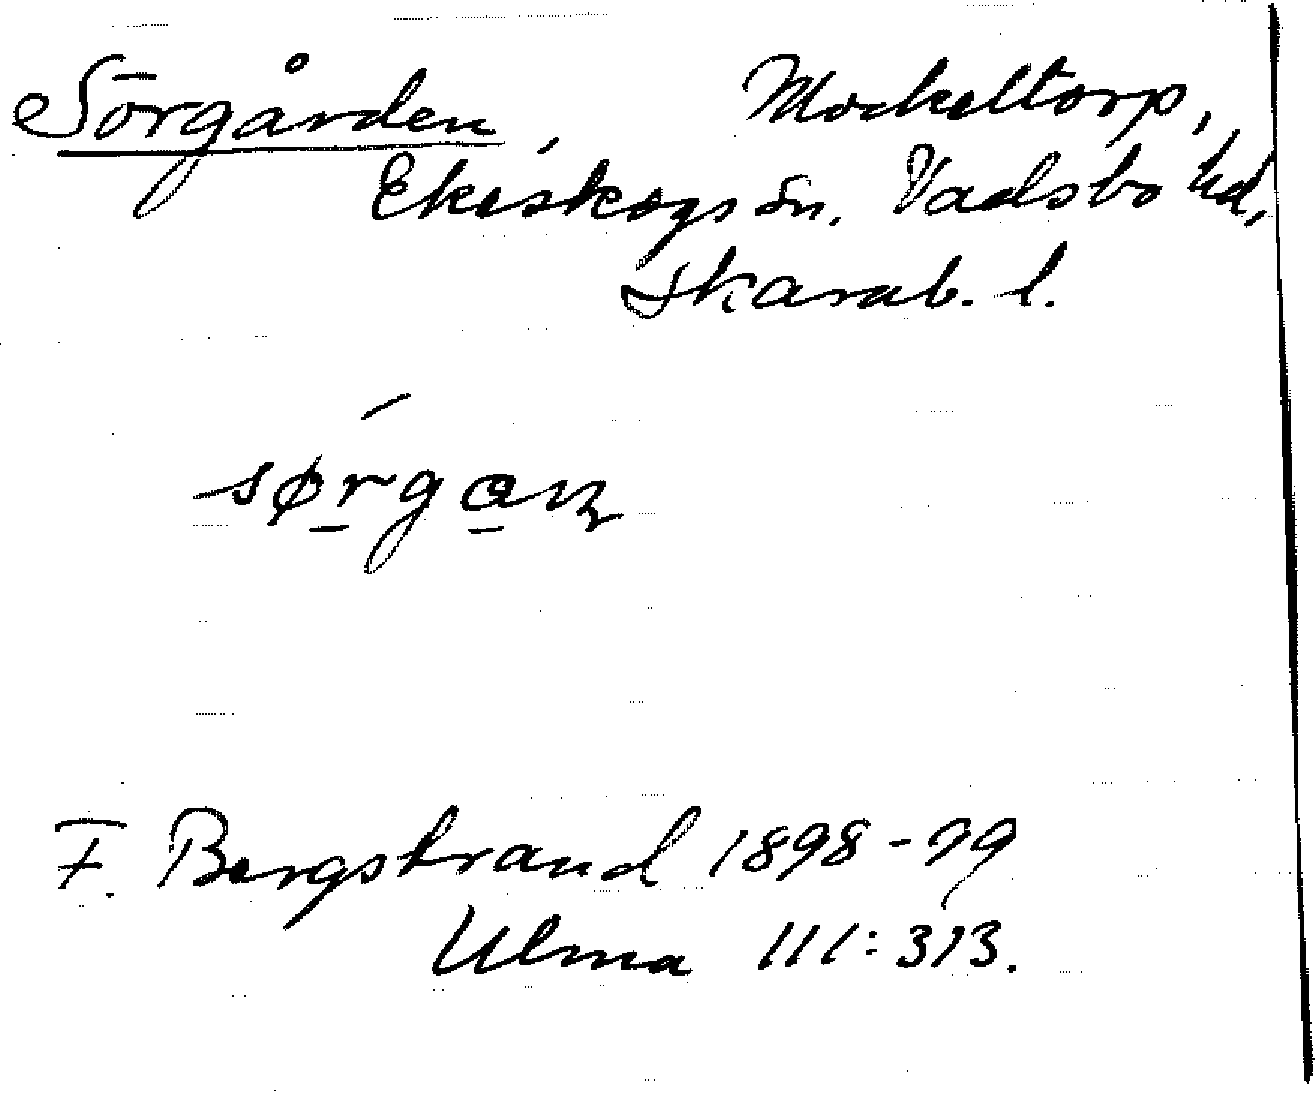 Sörgården, Mockeltorp,
Ekeskogs sn. Vadsbo hd,
Skarab. l.
F. Bergstrand 1898-99
Ulma 111:313.